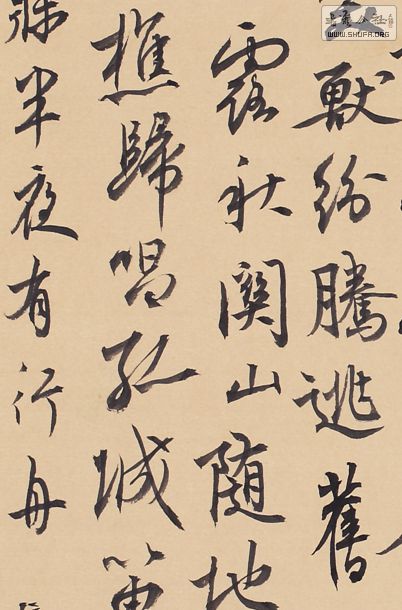 獸紛騰逃舊
露秋關山隨地
樵歸唱孤城笛
半夜有行舟
WWW.SHUFA.ORG